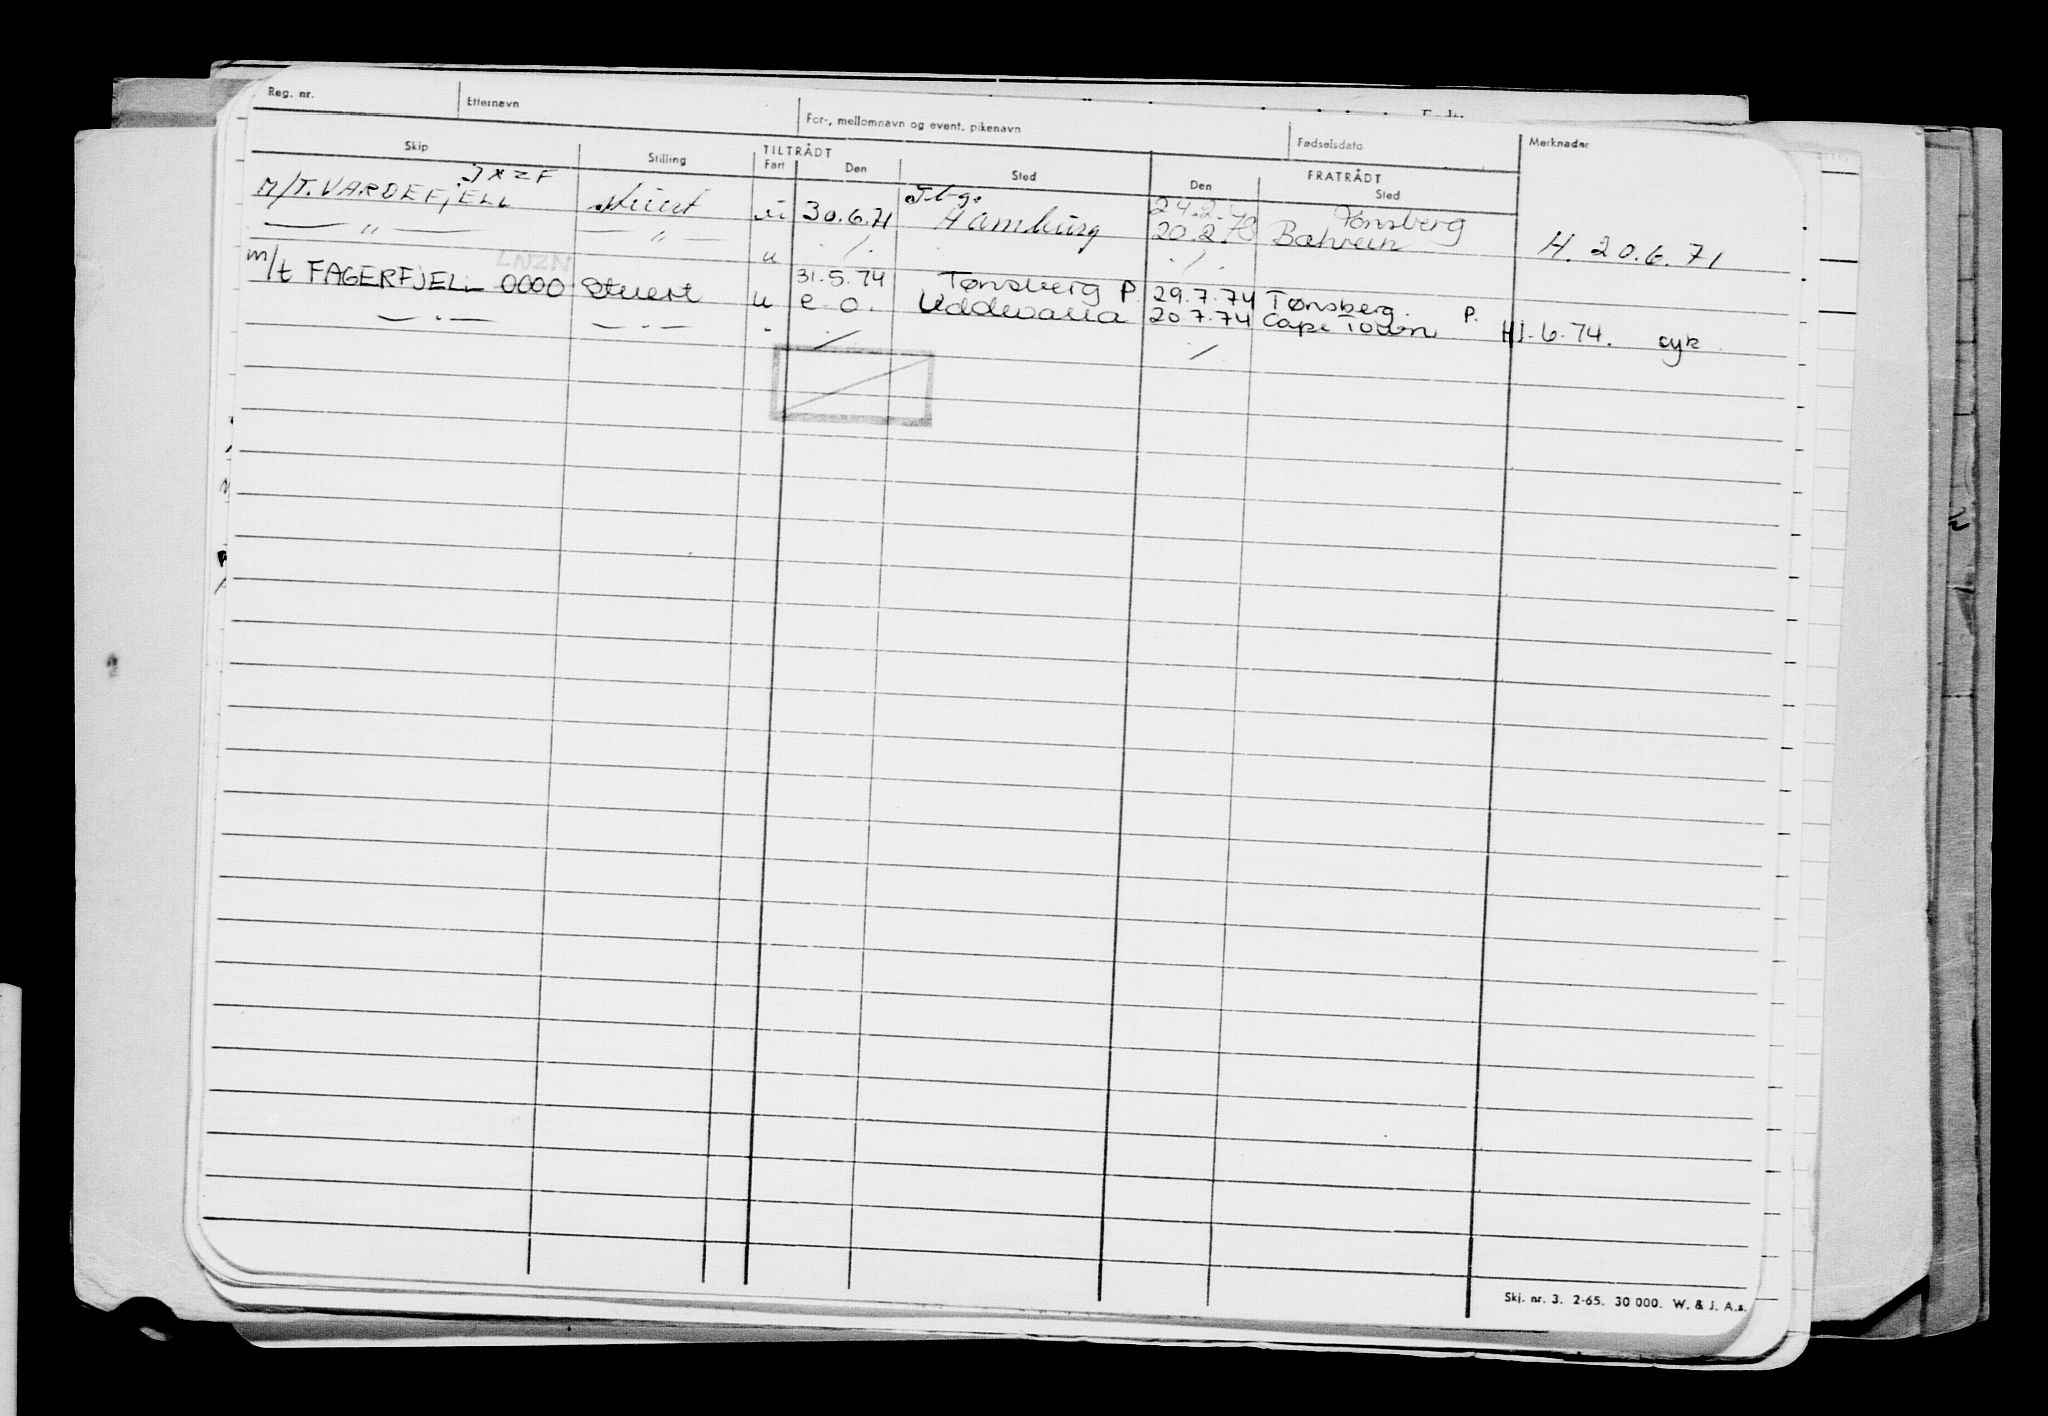 Reg. nr. Etternavn For-, mellomnavn og event. pikenavn Fødselsdato Merknader
Skip Stilling TILTRÅDT FRATRÅDT
Fart Den Sted Den Sted
JXZF Tbg. 24.2. Tønsberg
M/T. VARDEFJELL stuert u 30.6.71 Hamburg 20.2.73 Bahrein H. 20.6.71
— " — — " — u ./. ./.
LNZN 31.5.74 Tønsberg P 29.7.74 Tønsberg P.
m/t FAGERFJELL 0000 Stuert u e-o. Uddevalla 20.7.74 Cape Town HJ. 6.74. syk
— " — — " — " ./. ./.
Skj. nr. 3. 2-65. 30 000. W. & J. A.s.